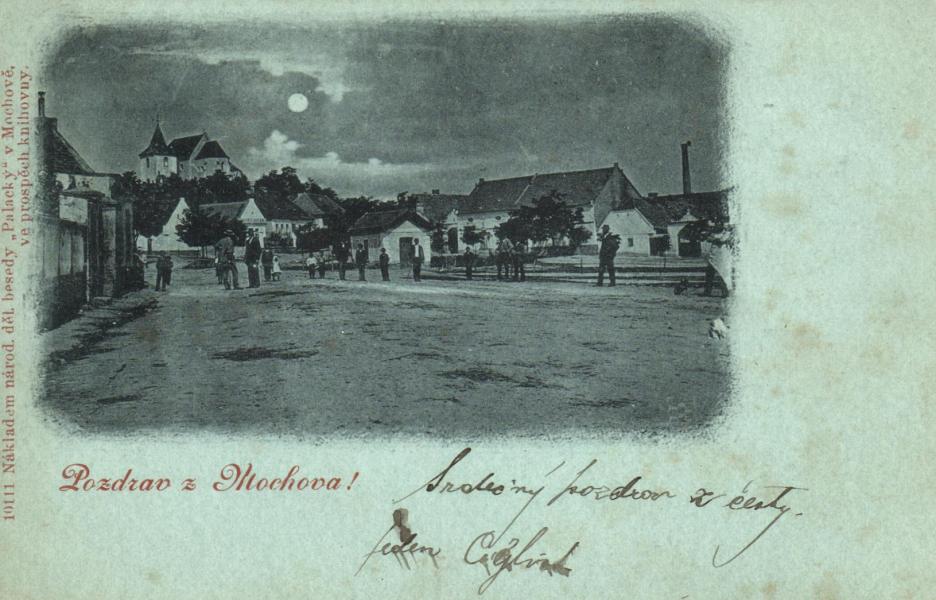 10111 Nákladem národ. děl. besedy „Palacký“ v Mochově,
ve prospěch knihovny.
Pozdrav z Mochova!
Srdečný pozdrav z cesty.